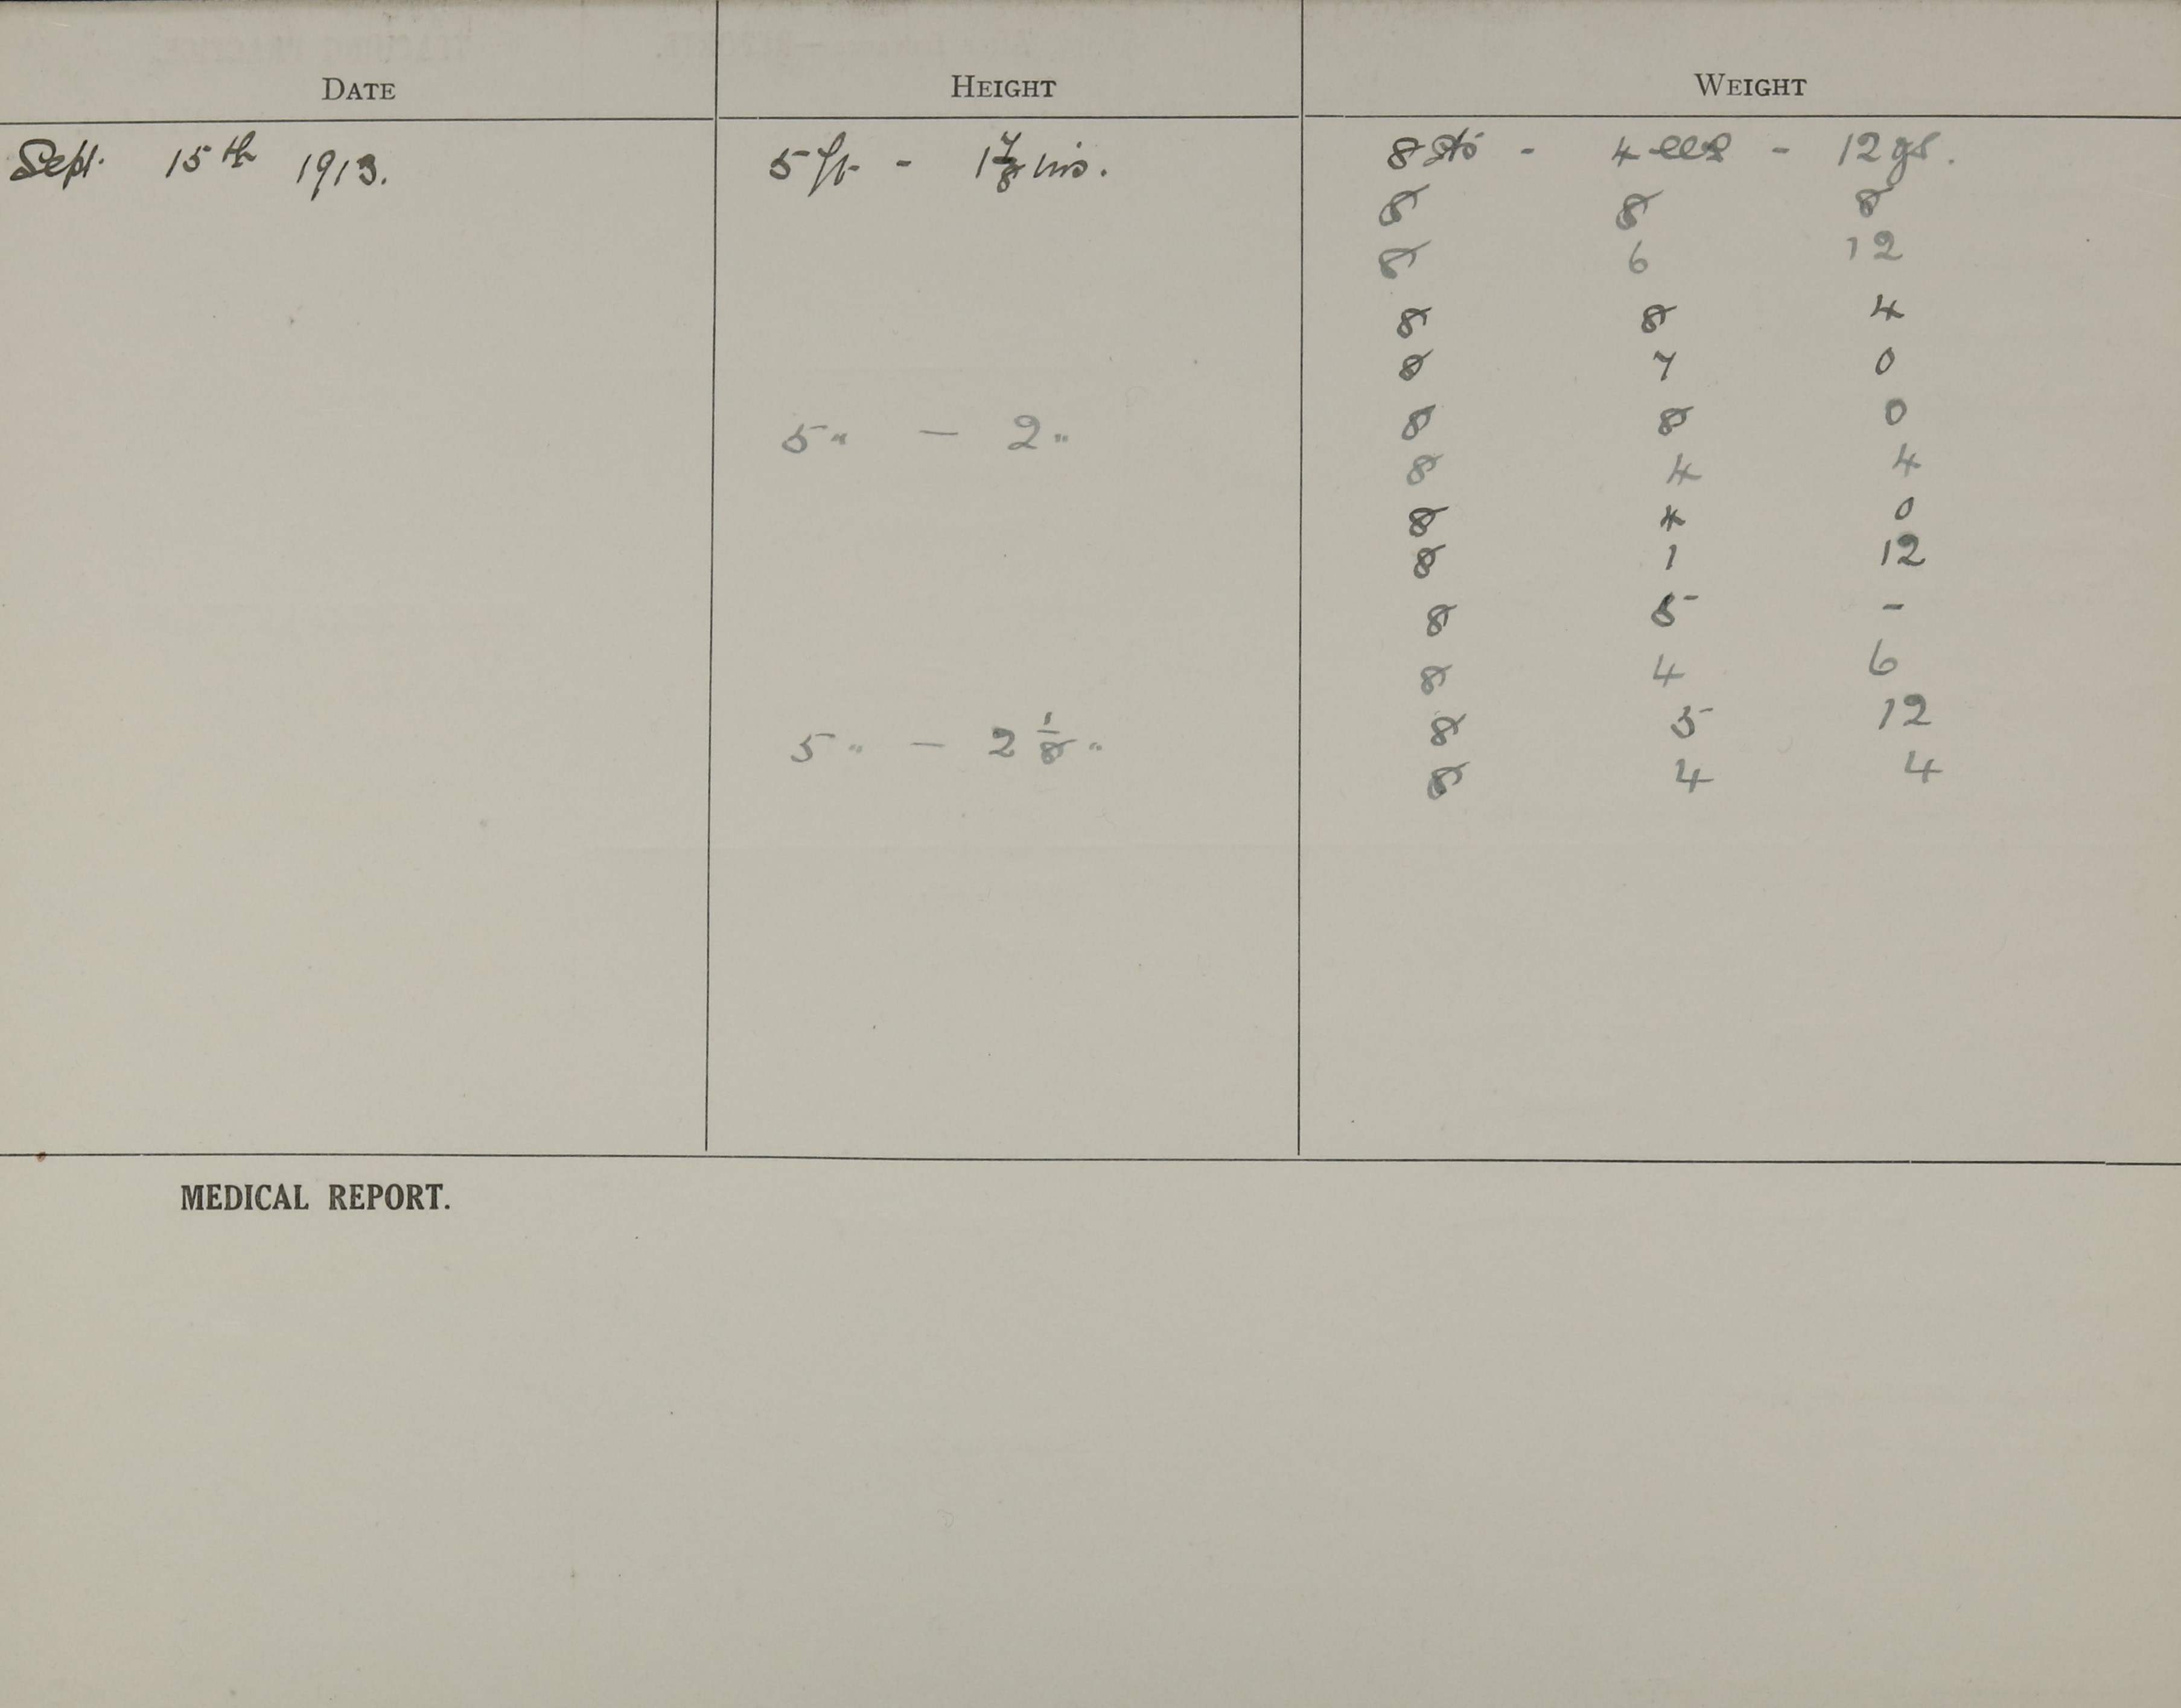 DATE HEIGHT WEIGHT
Sept. 15th 1913. 5 ft - 1 7/8 ins. 8 sts - 4 lbs - 12 gs.
8 8 8
8 6 12
8 8 4
8 7 0
5 " — 2 " 8 8 0
8 4 4
8 4 0
8 1 12
8 5 -
8 4 6
5 " — 2 1/8 " 8 5 12
8 4 4
MEDICAL REPORT.